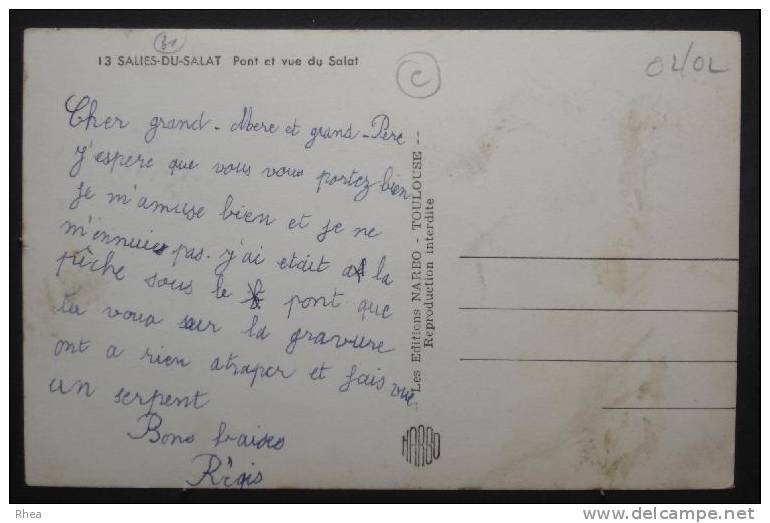 31
13 SALIES-DU-SALAT Pont et vue du Salat
C
02/02
Cher grand-Mere et grand-Père
J'espere que vous vous portez bien
Je m'amuse bien et je ne
m'ennuies pas. j'ai etait a la
pêche sous le pont que
tu voua sur la gravure
ont a rien atraper et j'ais vue
un serpent
Bons baises
Régis
Les Editions NARBO - TOULOUSE --
Reproduction interdite
NARBO
Rhea
delcampe.net